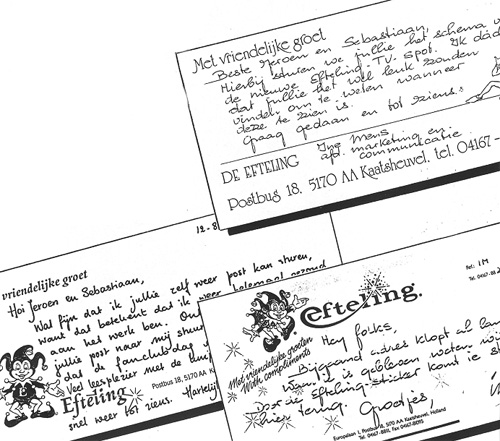 Met vriendelijke groet
Beste Jeroen en Sebastiaan,
Hierbij sturen we jullie het schema v
de nieuwe Efteling-TV-spot. Ik dach
dat jullie het wel leuk zouden
vinden om te weten wanneer
deze te zien is.
Graag gedaan en tot ziens!
Mens
afd. marketing en
communicatie
DE EFTELING
Postbus 18. 5170 AA Kaatsheuvel. tel. 04167 -
12-8
vriendelijke groet
Hoi Jeroen en Sebastiaan,
Wat fijn dat ik jullie zelf weer post kan sturen,
want dat betekent dat ik weer helemaal gezond
aan het werk ben. On
jullie post naar mij stuu
dat de fanclubdag
Veel leesplezier met de kni
Postbus 18, 5170 AA
Efteling
snel weer tot ziens. Hartelij
efteling.
Ref: IM
Tel. 0467-88
Met vriendelijke groeten
With compliments
Hey folks,
Bijgaand adres klopt al lan
Want I is gebleven
Door de Efteling-sticker komt ie
hier terug. Groetjes,
Europalaan 1, Postbus 18, 5170 AA Kaatsheuvel, Holland